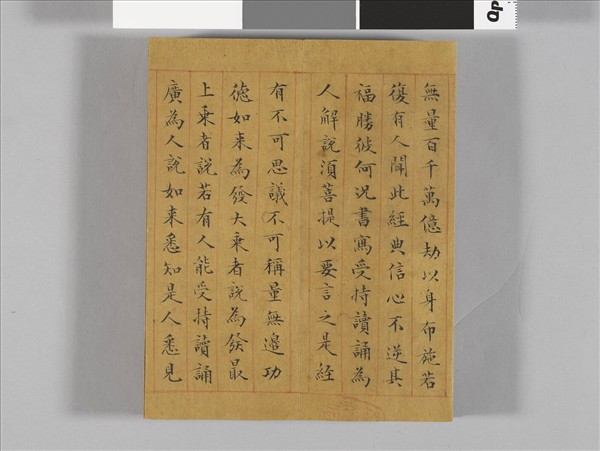 無量百千萬億劫以身布施若
復有人聞此經典信心不逆其
福勝彼何況書寫受持讀誦為
人解說須菩提以要言之是經
有不可思議不可稱量無邊功
德如来為發大乗者說為發最
上乗者說若有人能受持讀誦
廣為人說如来悉知是人悉見